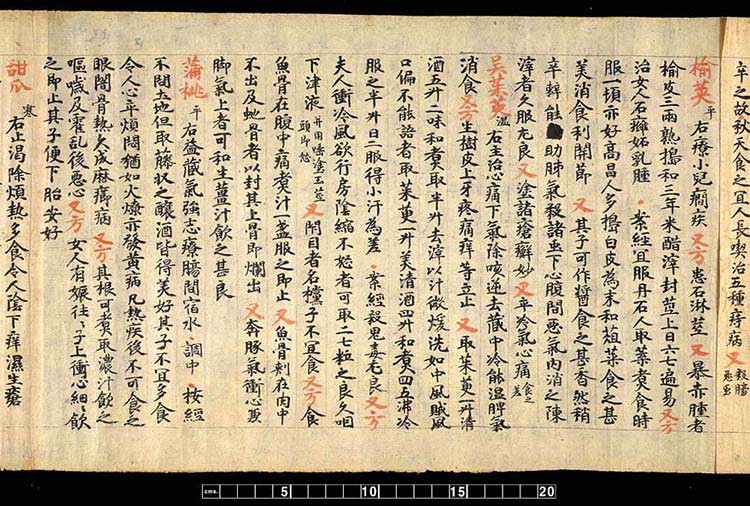 辛之故秋天食之宜人長喫治五種痔病 又 殺腸惡虫
榆莢 平 右療小兒癇疾 又方 患石淋莖 又 暴赤腫者
榆皮三兩熟搗和三年米醋滓封莖上日六七遍易 又方
治女人石癰妬乳腫 案經宜服丹石人取葉煮食時
服一頓亦好高昌人多搗白皮為末和菹菜食之甚
美消食利關節 又 其子可作醬食之甚香然稍
辛辣能助肺氣殺諸虫下心腹間惡氣內消之陳
滓者久服尤良 又 塗諸瘡癬妙 又 卒冷氣心痛食之差
吳茱萸 温 右主治心痛下氣除咳逆去藏中冷能温脾氣
消食 又方 生樹皮上牙疼痛痒等立止 又 取茱萸一升清
酒五升二味和煮取半升去滓以汁微煖洗如中風賊風
口偏不能語者取茱萸一升美清酒四升和煮四五沸冷
服之半升日二服得小汗為差 案經殺鬼毒尤良 又方
夫人衝冷風欲行房陰縮不怒者可取二七粒之良久咽
下津液 并用唾塗玉莖頭即怒 又 閇目者名欓子不宜食 又方 食
魚骨在腹中痛煮汁一盞服之即止 又 魚骨刺在肉中
不出及虵骨者以封其上骨即爛出 又 奔豚氣衝心兼
脚氣上者可和生薑汁飲之甚良
蒲桃 平 右益藏氣強志療腸間宿水調中 按經
不問土地但取藤收之釀酒皆得美好其子不宜多食
令人心卒煩悶猶如火燎亦發黃病凡熱疾後不可食之
眼闇骨熱久成麻癤病 又方 其根可煮取濃汁飲之
嘔噦及霍亂後惡心 又方 女人有娠往々子上衝心細々飲
之即止其子便下胎安好
甜瓜 寒 右止渴除煩熱多食令人陰下痒濕生瘡
cms. 5 10 15 20